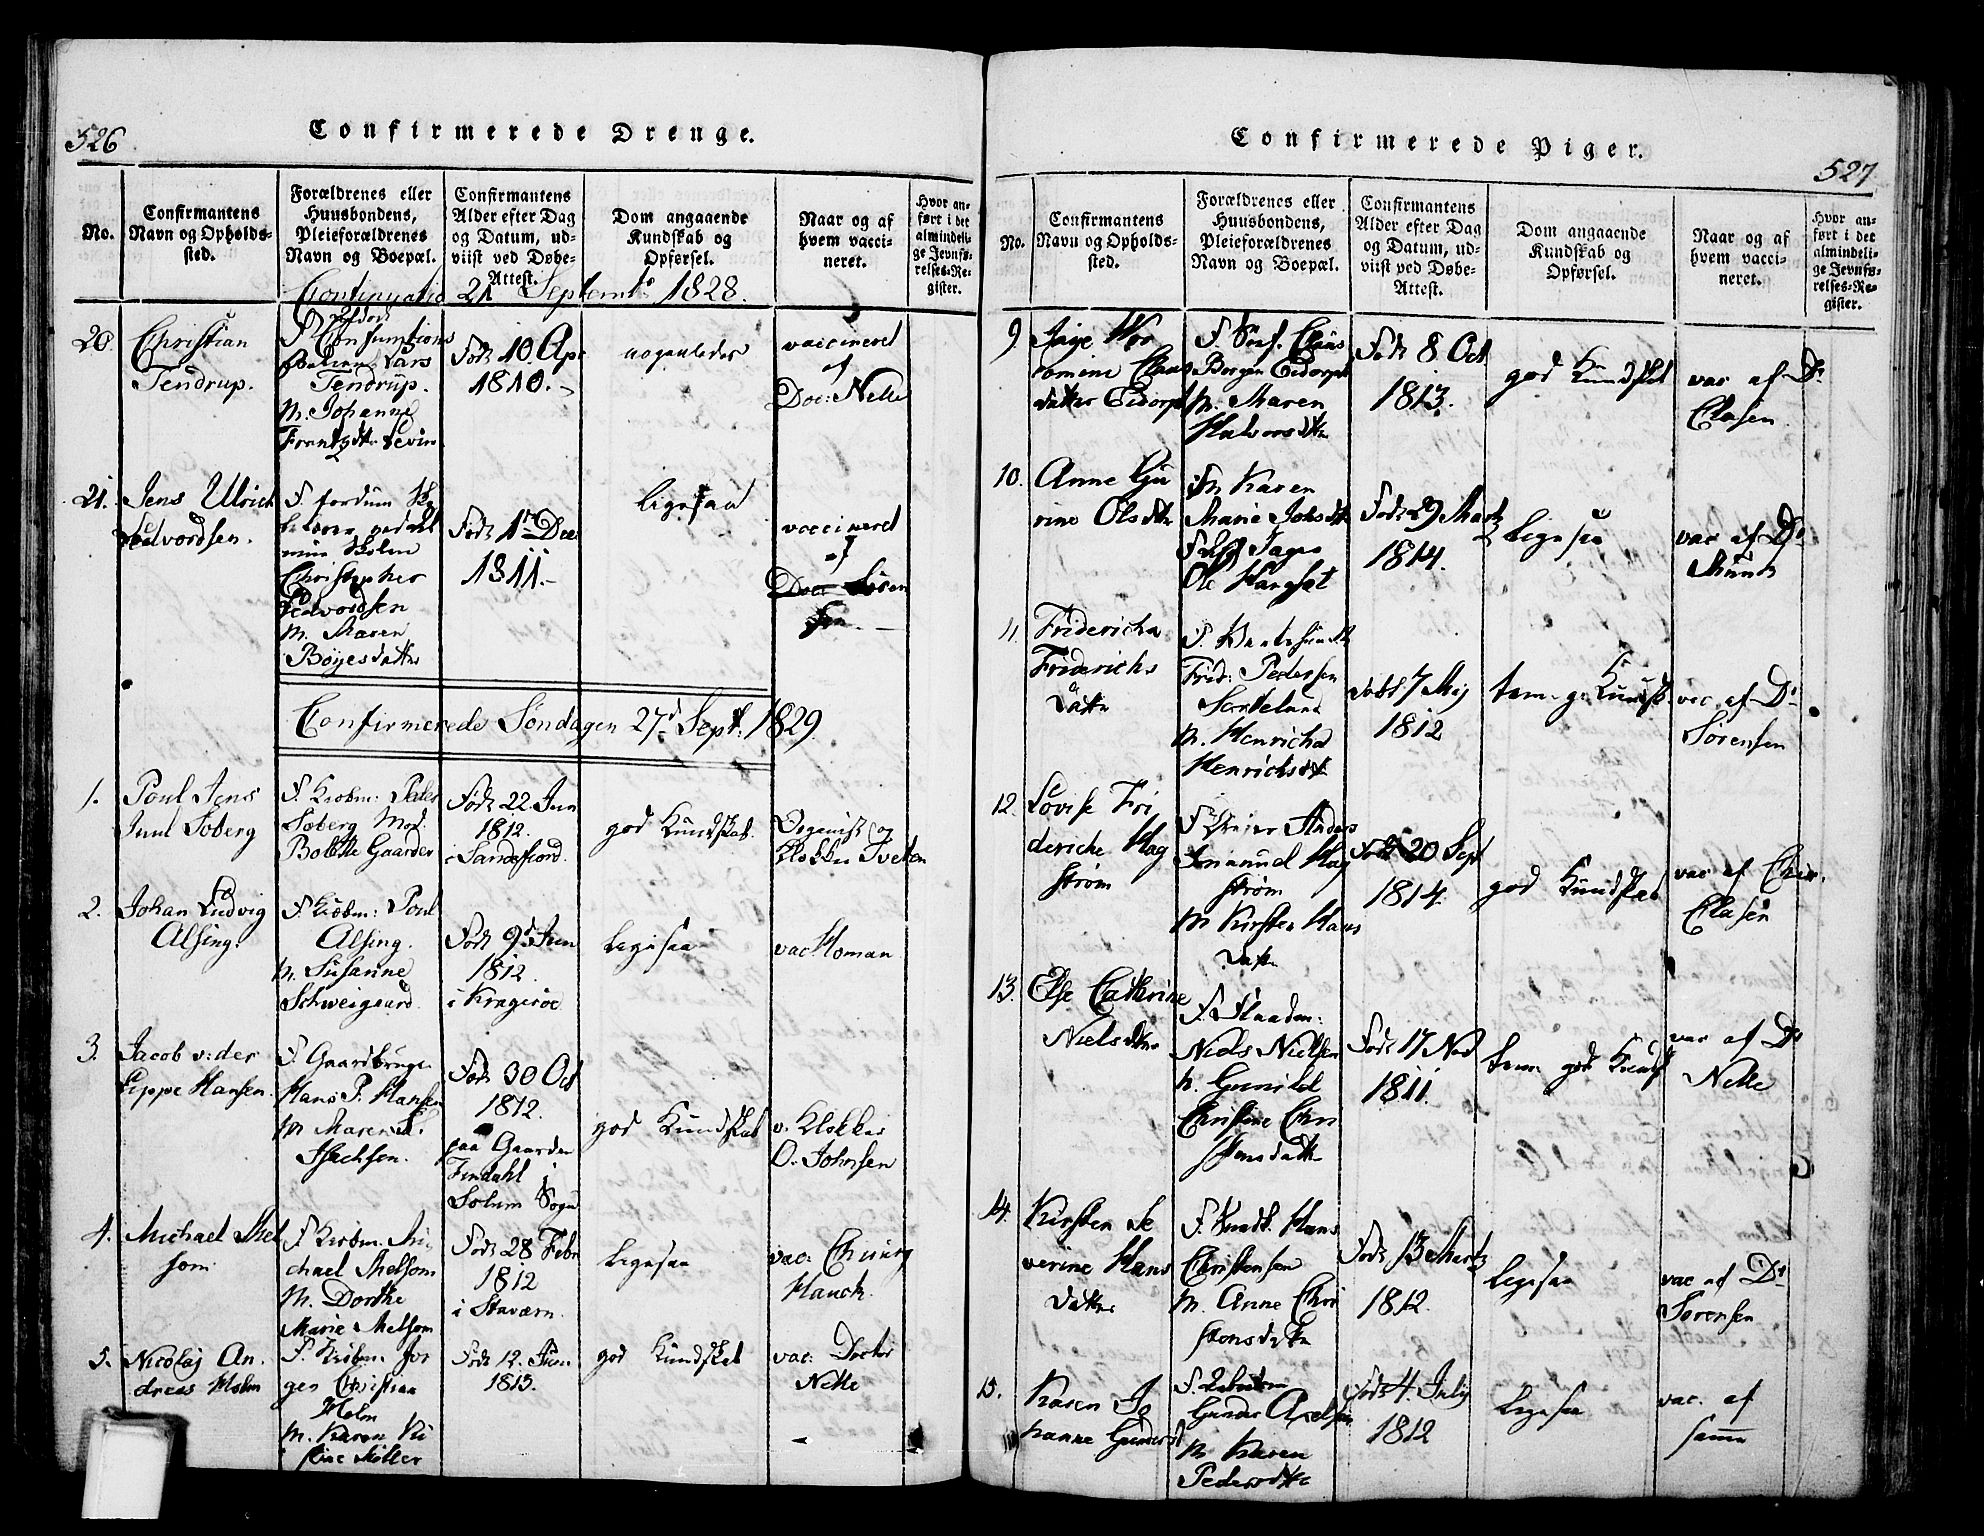 526
Confirmerede Drenge.
No.
Confirmantens
Navn og Opholds-
sted.
Forældrenes eller
Huusbondens,
Pleieforældrenes
Navn og Boepæl.
Confirmantens
Alder efter Dag
og Datum, ud-
viist ved Døbe-
Attest.
Dom angaaende
Kundskab og
Opførsel.
Naar og af
hvem vacci-
neret.
Hvor an-
ført i det
almindeli-
ge Jevnfø-
relses-Re-
gister.
Continuatio 21 Septembr 1828.
20.
Christian
Tendrup.
Lars
Tendrup.
M. Johanne
Født 10 Apr
1810.
nogenledes
vaccineret
af
Doc: Nelle
21.
Jens Ulrich
Ledvordsen.
F. fordum
Christopher
Ledvordsen
M. Maren
Bøyesdatter
Født 1 Dec
1811.
Ligesaa
vaccineret
af
Doc: Sören
sen
Confirmerede Søndagen 27d Sept: 1829.
1.
Poul Jens
Juul Soberg
F. Kiøbm: Peder
Soberg Mod.
Bolette Gaarder
Født 22 Jun
1812.
i Sandefiord.
god Kundskab.
Organist og
Klokker Tveten
2.
Johan Ludvig
Alsing.
F. Kiøbm: Poul
Alsing.
M. Susanne
Schweigaard.
Født 9d Jun
1812.
i Kragerøe
Ligesaa
vac Homan
3.
Jacob v: der
Lippe Hansen.
F. Gaardbruger
Hans P. Hansen
M Maren
Isachsen.
Født 30 Oct
1812.
paa Gaarden
Findahl i
Solum Sogn
god Kundskab
v. Klokker
O. Johnsen
4.
Michael Mel
som
F. Kiøbm. Mi-
chael Melsom
M. Dorthe
Marie Melsom
Født 28 Febr
1812
i Staværn.
Ligesaa
vac: Chirurg
Hauch.
5.
Nicolaj An-
dreas Holm
F. Kiøbm. Jør
gen Christian
Holm
M. Karen Ki
stine Møller
Født 12. Jun
1813.
god Kundskab
vac: Doctor
Nelle
Confirmerede Piger.
527
No.
Confirmantens
Navn og Opholds-
sted.
Forældrenes eller
Huusbondens,
Pleieforældrenes
Navn og Boepæl.
Confirmantens
Alder efter Dag
og Datum, ud-
viist ved Døbe-
Attest.
Dom angaaende
Kundskab og
Opførsel.
Naar og af
hvem vacci-
neret.
Hvor an-
ført i det
almindeli-
ge Jevnfø-
relses-Re-
gister.
9.
Claus
datter Eidorph
Claus
Borgen Eidorph
M. Maren
Halvorsdttr
Født 8 Oct
1813.
god Kundskab
vac af Dr
Clasen
10.
Anne Gu
rine Olsdttr
M Karen
Marie Johsdttr
Ole Hargsæt
Født 29 Martz
1814.
Ligesaa
vac af Dr
Munch
11.
Fridericha
Friderichs
Datter
Frid: Pedersen
M. Henricha
Henrichsdt
Født 7 Mij
1812
tem. g. Kundsk.
vac. af Dr
Sørensen
12.
Lovise Fri
deriche Hag
strøm
Anders
Imanuel Hag
strøm
M Kirsten Hans
Datter
Født 20 Sept
1814.
god Kundskab
vac af Chir.
Clasen
13.
Else Cathrine
Nielsdtter
Niels Nielsen
M. Gunild
Christine Chri
stensdatter
Født 17 Nov
1811.
tem. god Kundsk
vac af Dr
Nelle
14.
Kirsten Se
verine Hans
Datter
Hans
Christensen
M. Anne Chri
stensdatter
Født 13 Martz
1812.
Ligesaa
vac af Dr
Sørensen
15.
Karen Jo
hanne Gundersdt
Gunder Axelsen
M Karen
Pedersdtr
Født 4. July
1812
Ligesaa
vac. af
samme